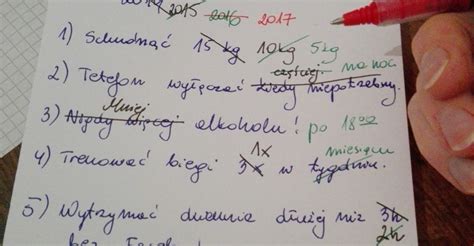 2014 2015 2016 2017
1) Schudnąć 15 kg 10kg 5kg
częściej na noc
2) Telefon wyłączać kiedy niepotrzebny.
Mniej
3) Nigdy więcej alkoholu! po 18:00
1x miesiącu
4) Trenować biegi 3x w tygodniu.
5) Wytrzymać dwadnia dłużej niż 3h
2h
bez